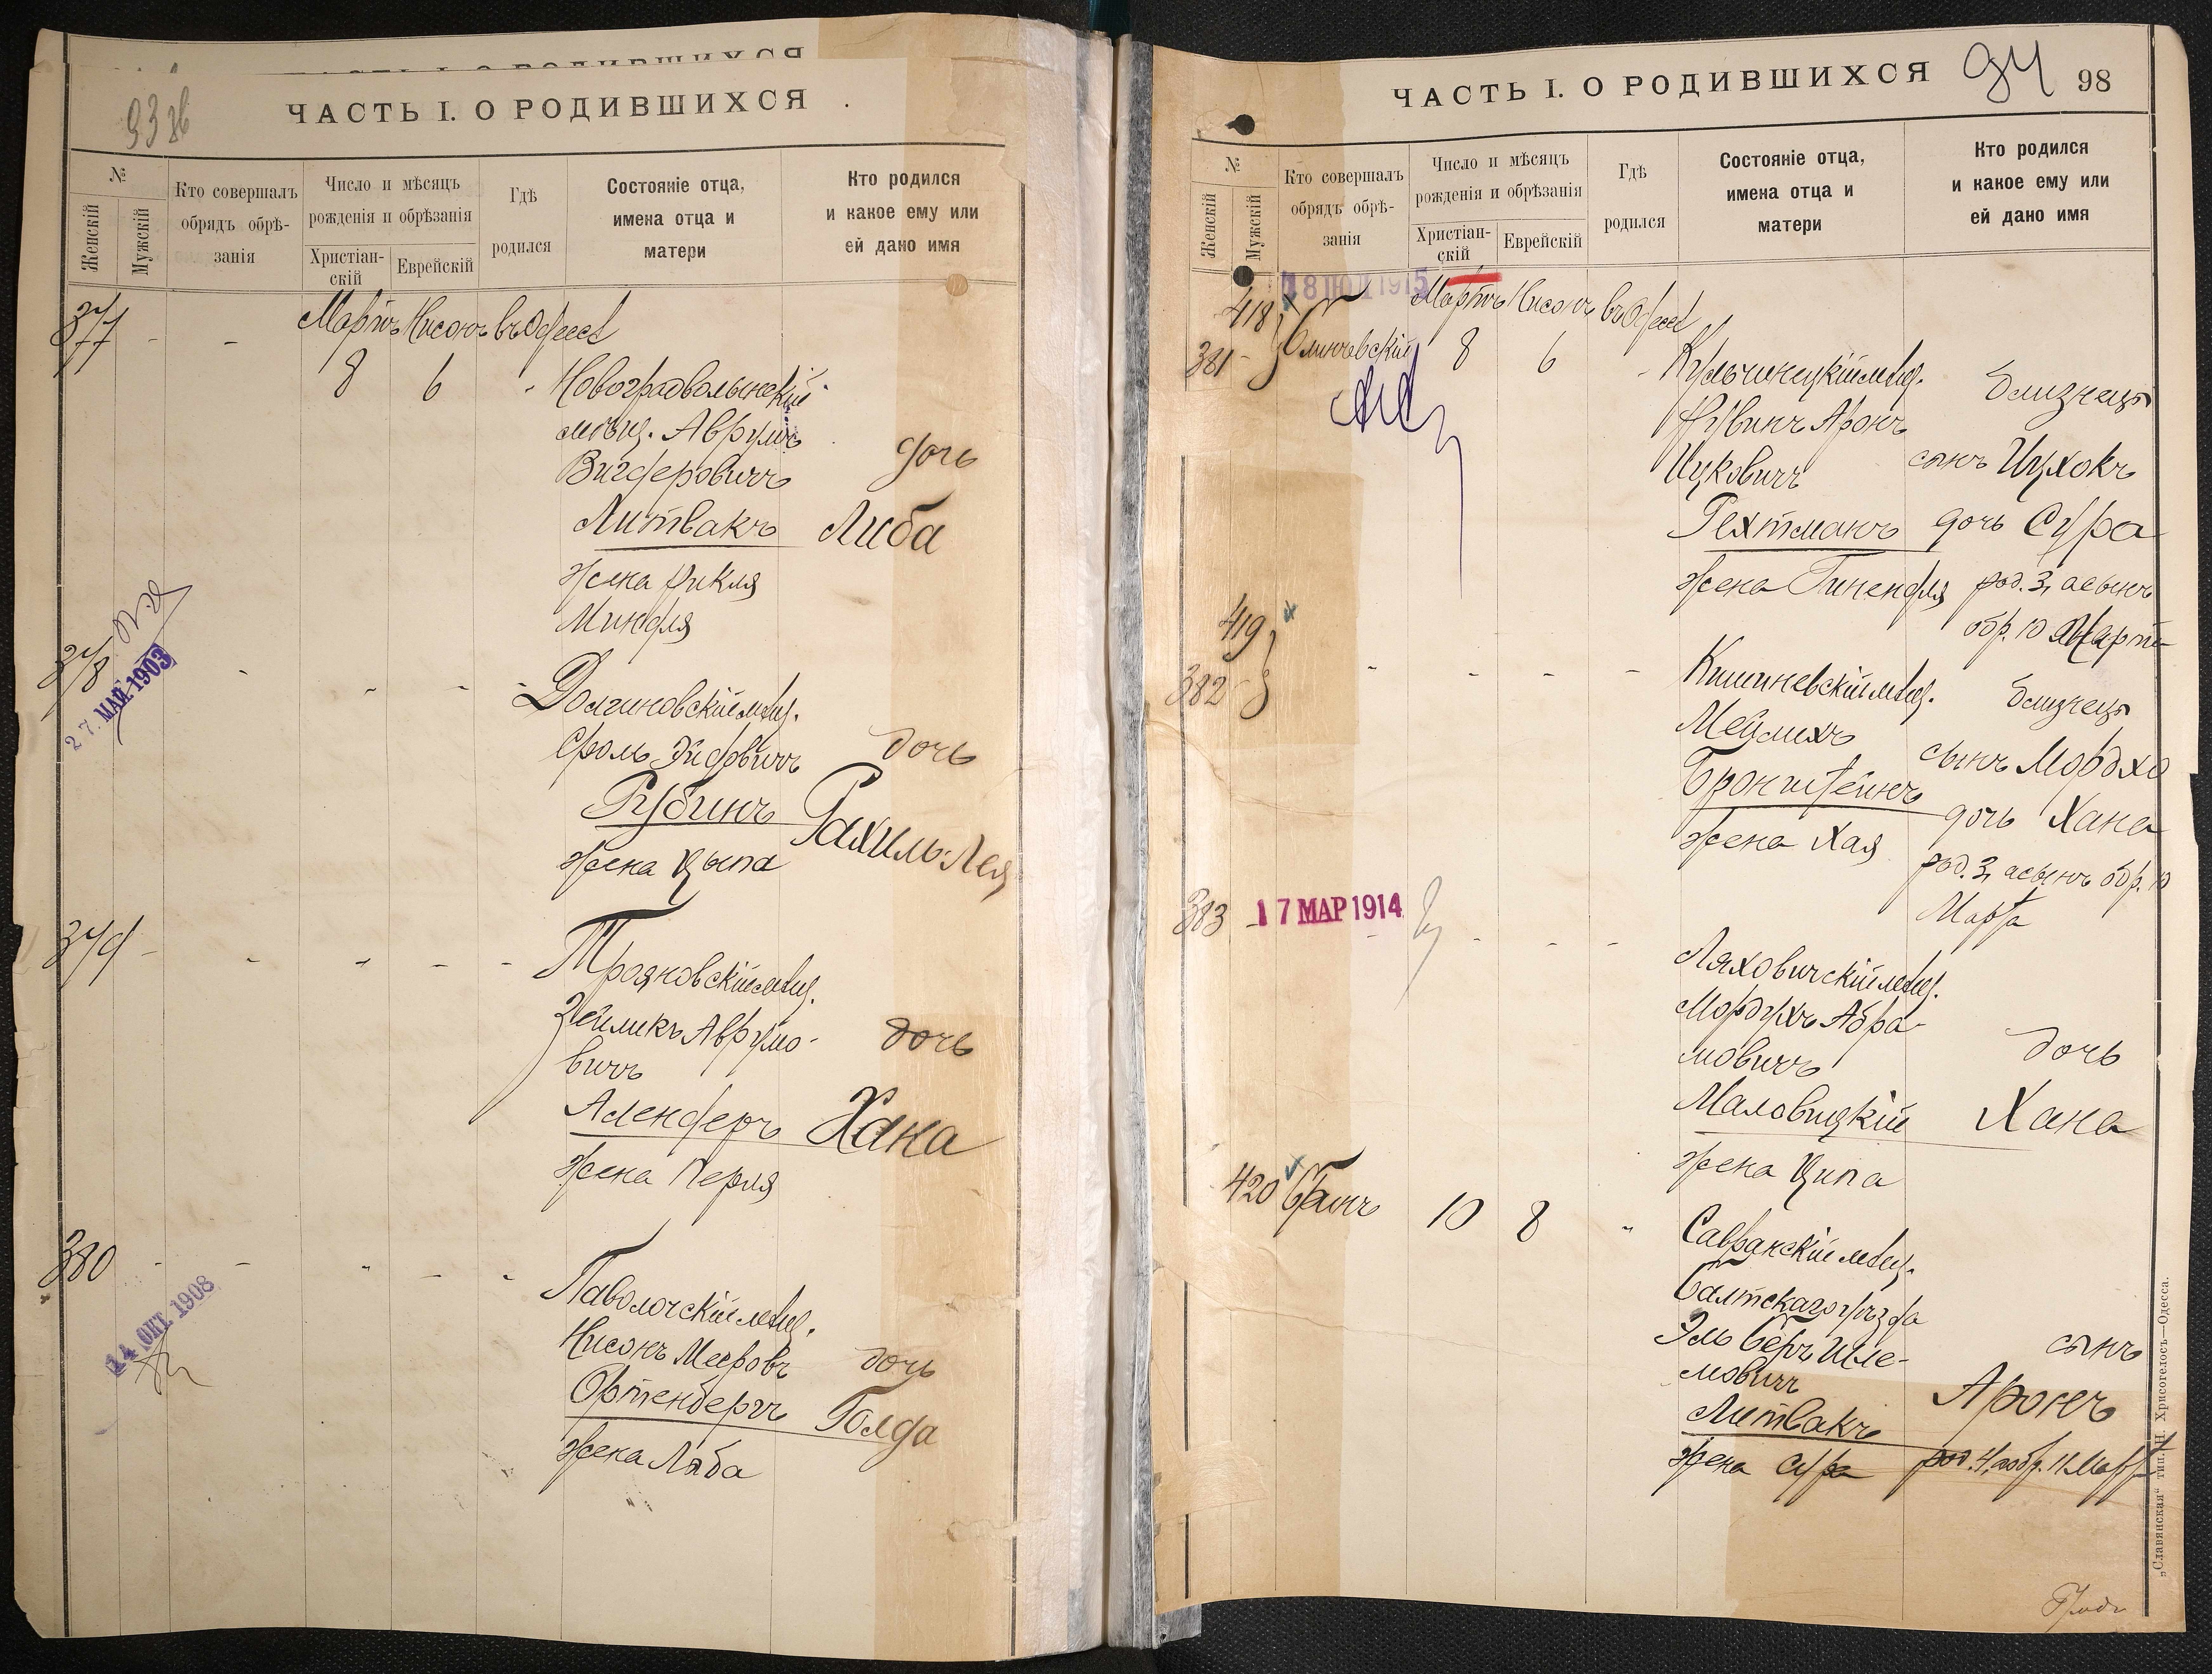 93 зв
ЧАСТЬ I. О РОДИВШИХСЯ
№
Женскій
Мужскій
Кто совершалъ обрядъ обрѣзанія
Число и мѣсяцъ рожденія и обрѣзанія
Христіанскій
Еврейскій
Гдѣ родился
Состояніе отца, имена отца и матери
Кто родился и какое ему или ей дано имя
377 - - Мартъ Нисонъ въ Одессѣ
8 6 Новоградволынскій
мѣщ. Аврумъ
Вигдеровичъ дочь
Литвакъ Либа
жена Рикля
Миндля
378
27. МАЙ 1903
Долгиновскій мѣщ.
Сроль дочь
Рубинъ Рахиль-Лея
жена Цыпа
379 -
Трояновскій мѣщ.
Зейликъ Аврумо-
вичъ дочь
Алендеръ Хана
жена Перля
380
14 ОКТ. 1908
Паволочскій мѣщ.
Нисонъ Мееровъ дочь
Ортенбергъ Голда
жена Люба
ЧАСТЬ I. О РОДИВШИХСЯ
94 98
№
Женскій
Мужскій
Кто совершалъ обрядъ обрѣзанія
Число и мѣсяцъ рожденія и обрѣзанія
Христіанскій
Еврейскій
Гдѣ родился
Состояніе отца, имена отца и матери
Кто родился и какое ему или ей дано имя
1915
418 Мартъ Нисонъ въ Одессѣ
381 - 8 6 Кульчинецкій мѣщ. близнецы
Рувинъ Аронъ
Ицковичъ сынъ Ицхокъ
Гехтманъ дочь Сура
жена Гинендля род. 3, а сынъ
обр. 10 Марта
419
382 - Кишиневскій мѣщ. близнецы
Мейлихъ сынъ Мордхо
Бронштейнъ дочь Хана
жена Хая род. 3, а сынъ обр. 10
Марта
383 - 17 МАР 1914
Ляховичскій мѣщ.
Мордухъ Абра-
мовичъ дочь
Маловицкій Хана
жена Ципа
420 10 8 Савранскій мѣщ.
Балтскаго уѣзда
Эль Беръ Шле- сынъ
мовичъ Аронъ
Литвакъ
жена Сура род. 4, а обр. 11 Марта
„Славянская“ тип. Н. Хрисогелосъ—Одесса.